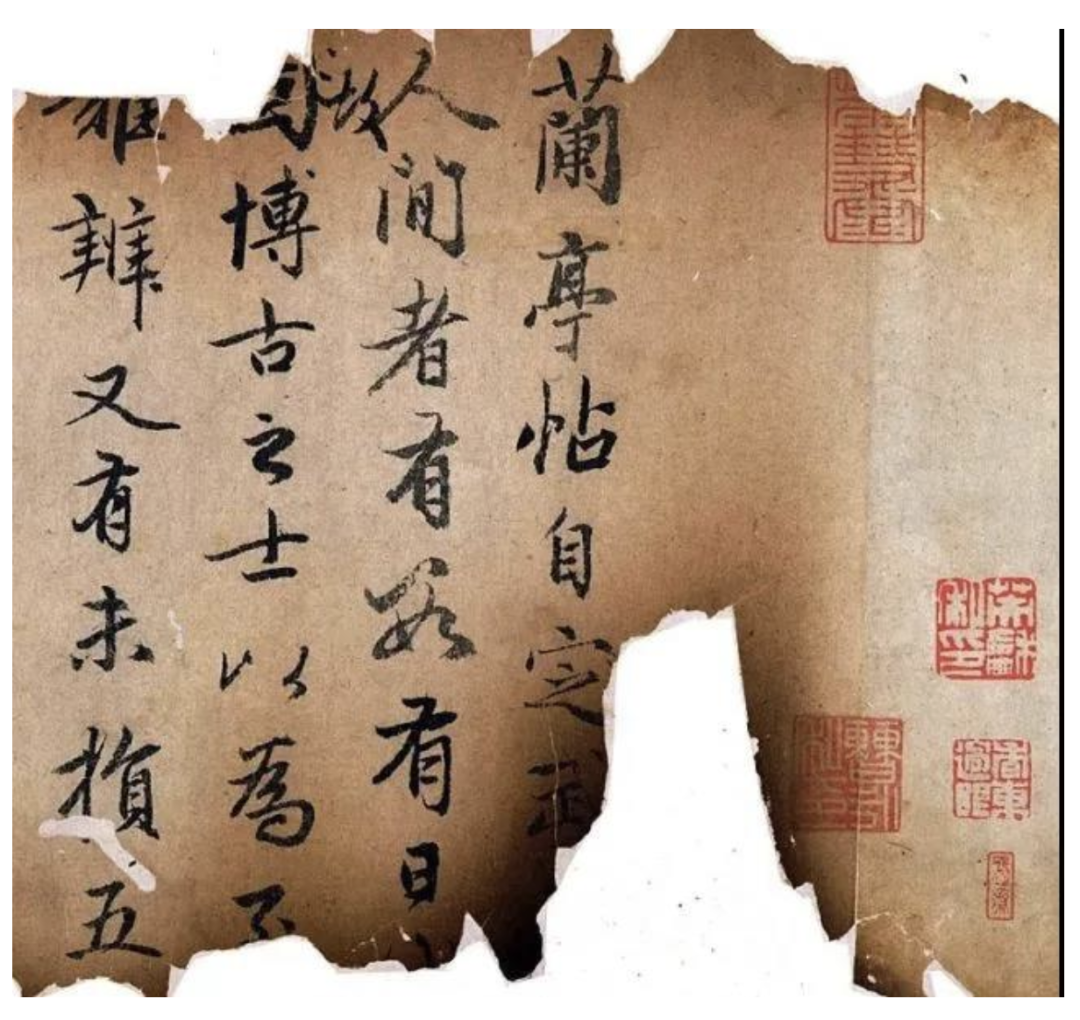 蘭亭帖自定武
人間者有數有日
故博古之士以為
難辨又有未損五